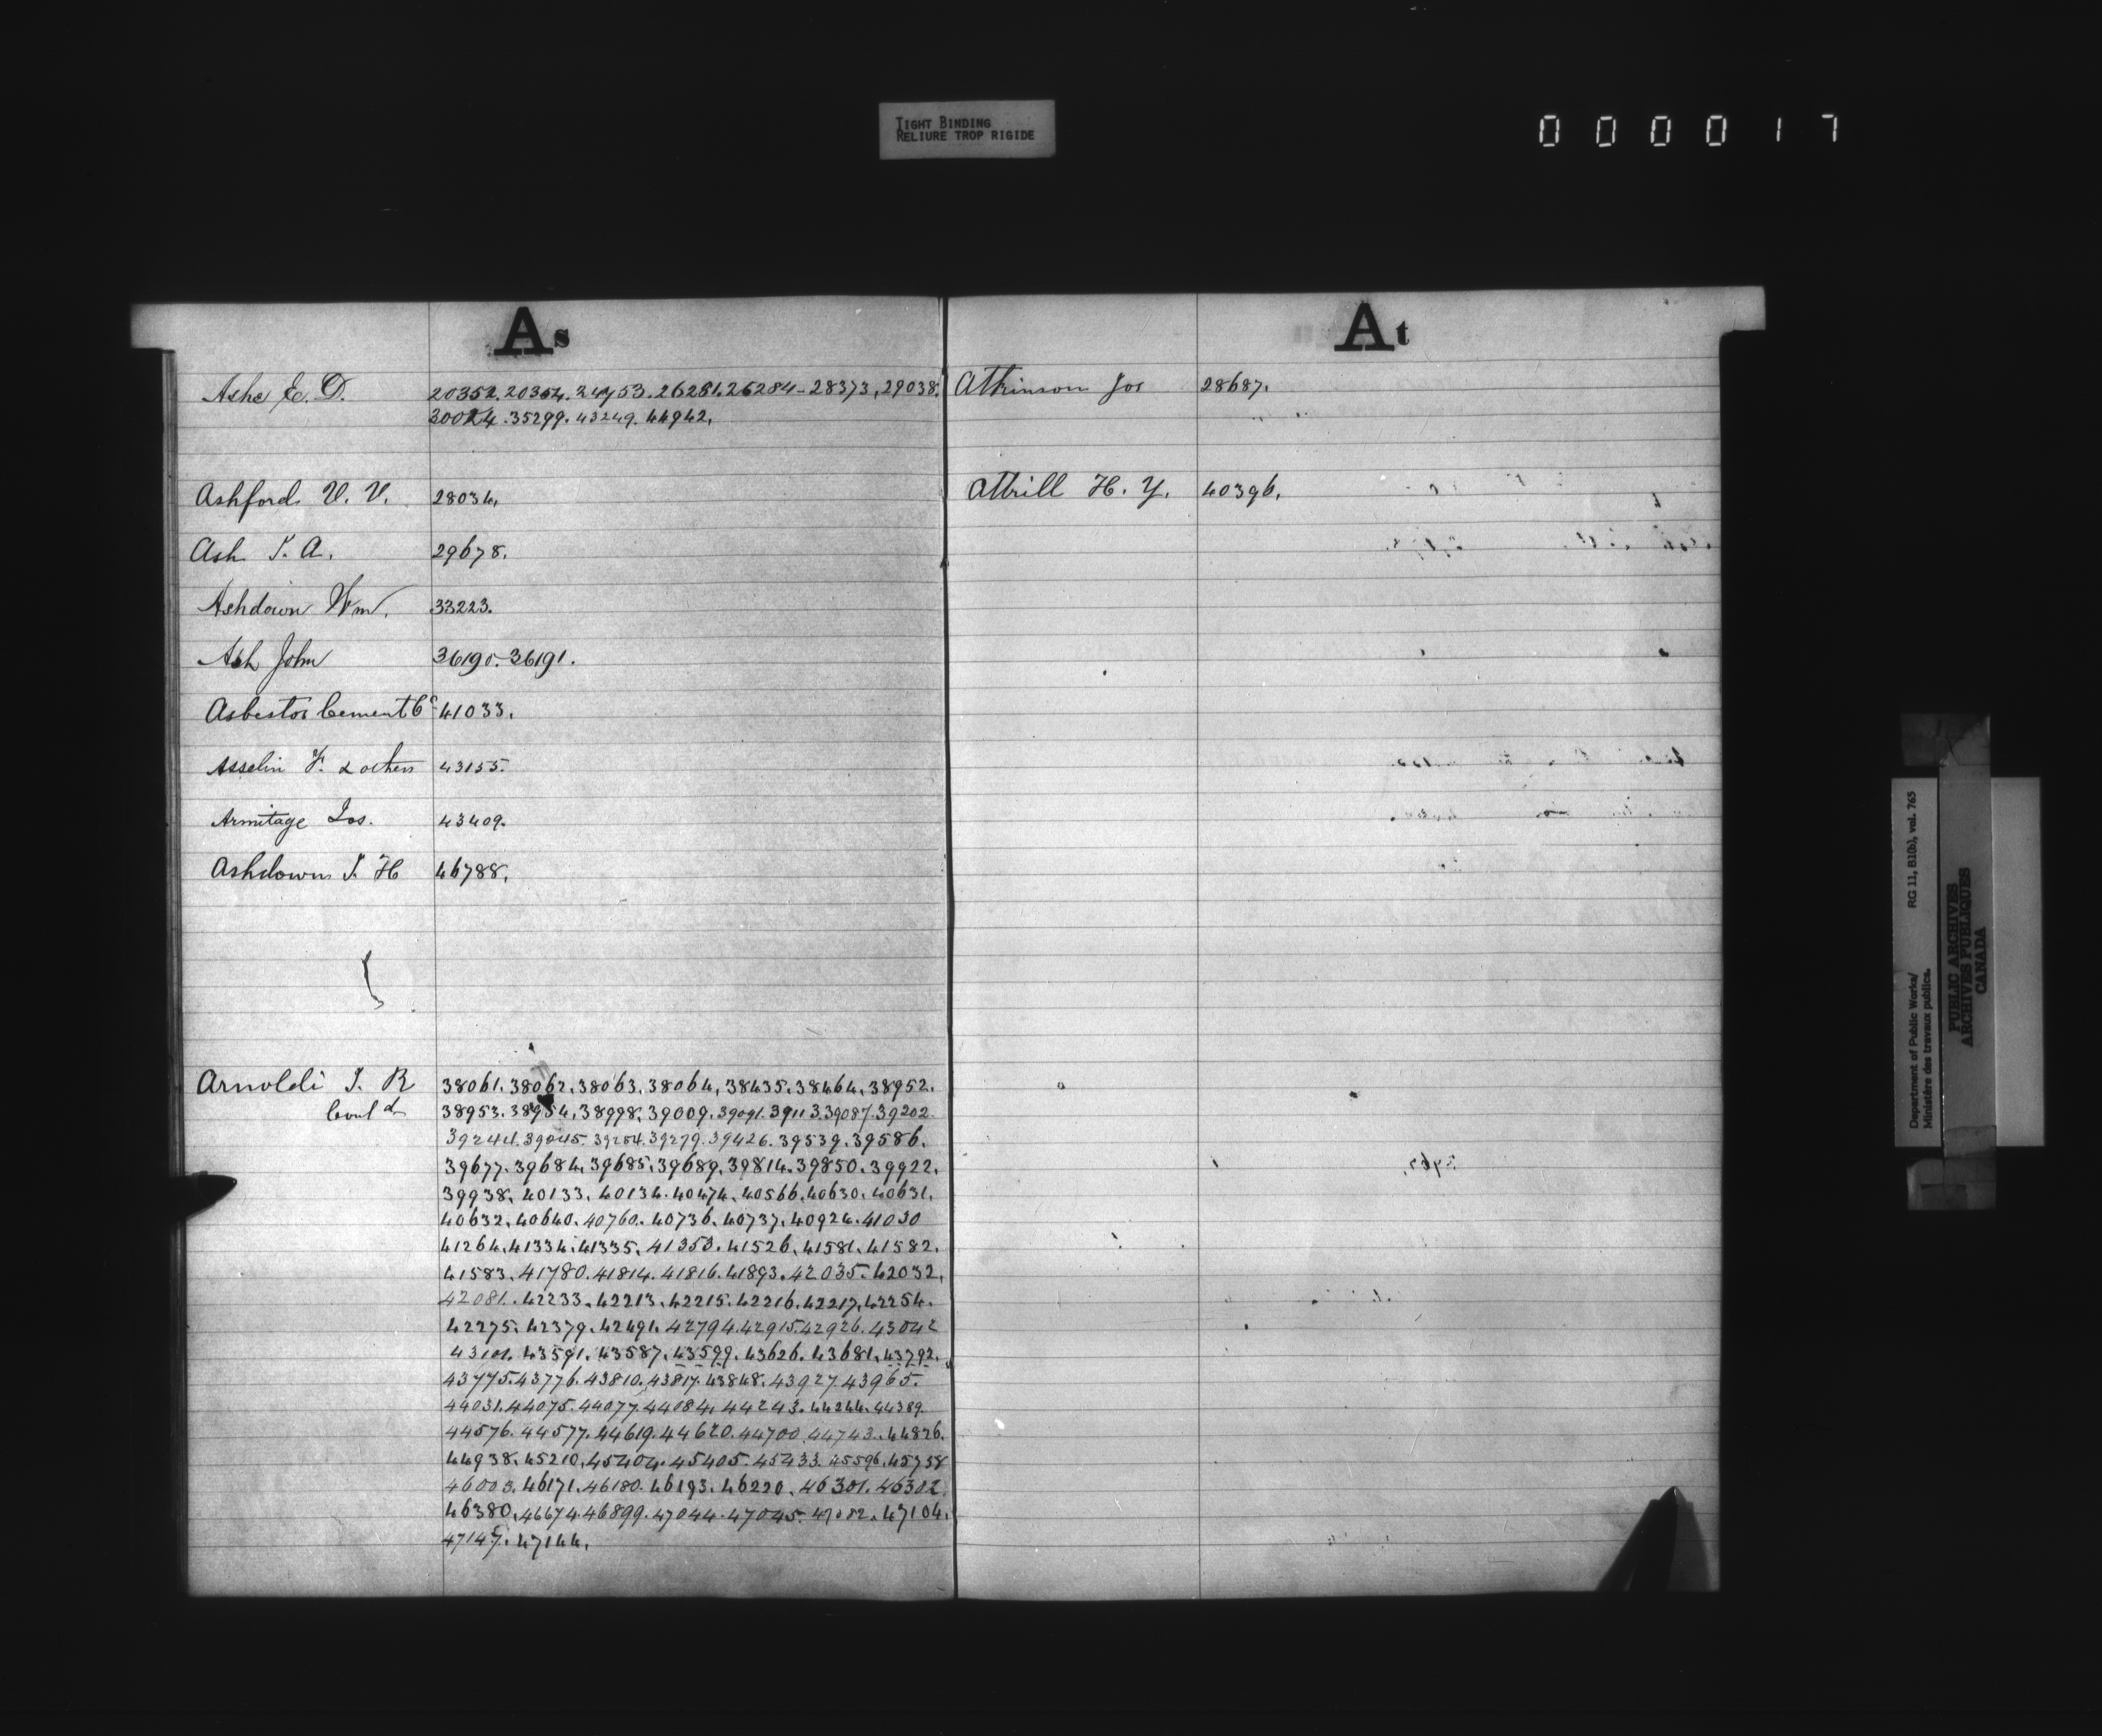 TIGHT BINDING
RELIURE TROP RIGIDE
000017
As
Ashe E. D. 20352. 20354. 24753. 26281. 26284 - 28373, 29038.
30024. 35299. 43249. 44942.
Ashford V. V. 28034.
Ash J. A. 29678.
Ashdown Wm. 33223.
Ash John 36190. 36191.
Asbestos Cement Co 41033.
Asselin F. & others 43155.
Armitage Jos. 43409.
Ashdown J. H 46788.
Arnoldi J. R 38061. 38062. 38063. 38064. 38435. 38464. 38952.
Contd 38953. 38954. 38998. 39009. 39091. 39113. 39087. 39202.
39244. 39045. 39254. 39279. 39426. 39539. 39586.
39677. 39684. 39685. 39689. 39814. 39850. 39922.
39938. 40133. 40134. 40474. 40566. 40630. 40631.
40632. 40640. 40760. 40736. 40737. 40924. 41030
41264. 41334. 41335. 41353. 41526. 41581. 41582.
41583. 41780. 41814. 41816. 41893. 42035. 42032.
42081. 42233. 42213. 42215. 42216. 42217. 42254.
42275. 42379. 42491. 42794. 42915. 42926. 43042
43101. 43591. 43587. 43599. 43626. 43681. 43792.
43775. 43776. 43810. 43817. 43848. 43927. 43965.
44031. 44075. 44077. 44084. 44243. 44244. 44389.
44576. 44577. 44619. 44620. 44700. 44743. 44826.
44938. 45210. 45404. 45405. 45433. 45596. 45738
46003. 46171. 46180. 46193. 46220. 46301. 46302.
46380. 46674. 46899. 47044. 47045. 47082. 47104.
47147. 47144.
At
Atkinson Jos 28687.
Attrill H. Y. 40396.
Department of Public Works/ RG 11, B1(b), vol. 765
Ministère des travaux publics.
PUBLIC ARCHIVES
ARCHIVES PUBLIQUES
CANADA